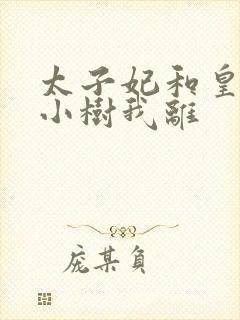 太子妃和皇
小樹我離
庞某負